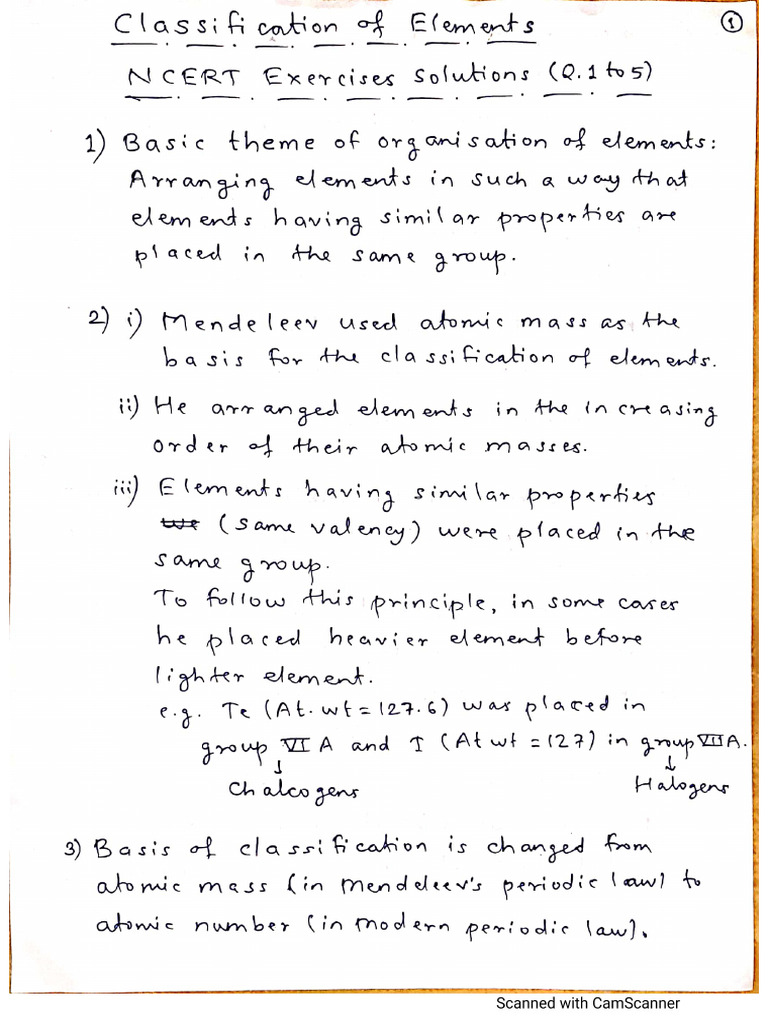 Classification of Elements
①
NCERT Exercises Solutions (Q.1 to 5)
1) Basic theme of organisation of elements:
Arranging elements in such a way that
elements having similar properties are
placed in the same group.
2) i) Mendeleev used atomic mass as the
basis for the classification of elements.
ii) He arranged elements in the increasing
order of their atomic masses.
iii) Elements having similar properties
(same valency) were placed in the
same group.
To follow this principle, in some cases
he placed heavier element before
lighter element.
e.g. Te (At. wt = 127.6) was placed in
group VI A and I (At wt = 127) in group VII A.
↓ ↓
Chalcogens Halogens
3) Basis of classification is changed from
atomic mass (in Mendeleev's periodic law) to
atomic number (in modern periodic law).
Scanned with CamScanner